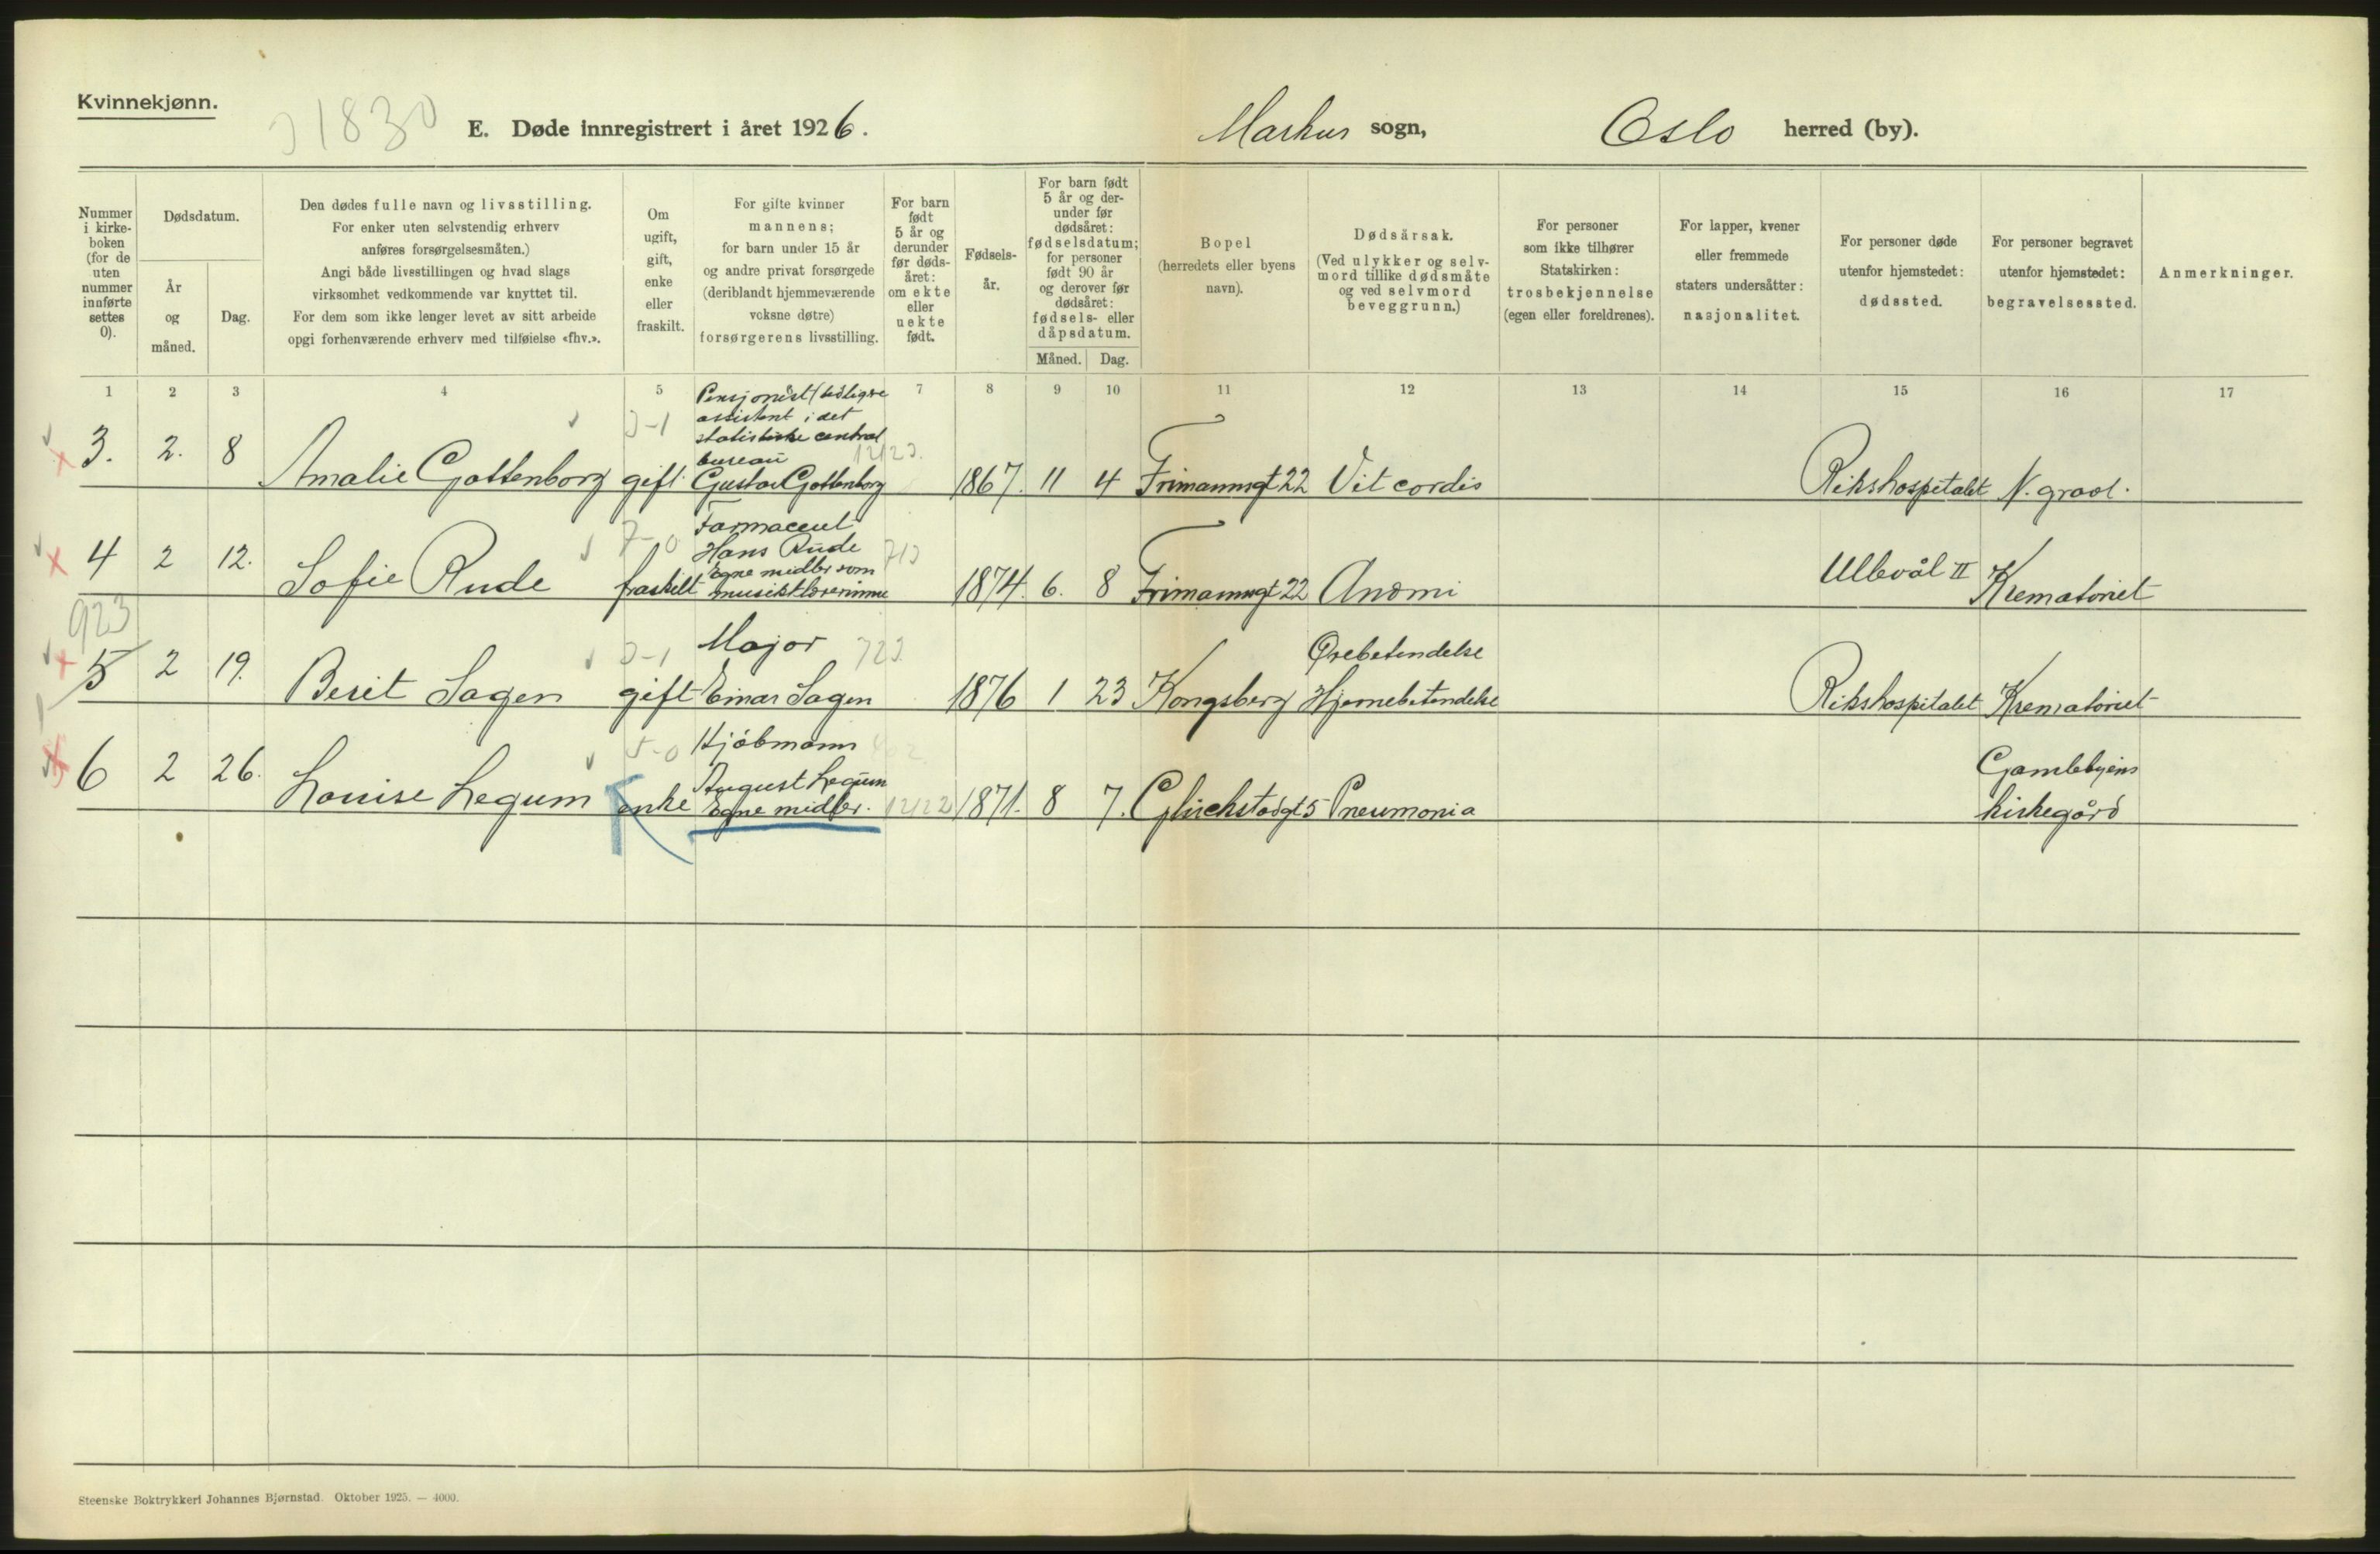 Kvinnekjønn.
1830
E. Døde innregistrert i året 1926.
Markus sogn,
Oslo herred (by).
Nummer i kirke-boken (for de uten nummer innførte settes 0).
Dødsdatum.
År og måned.
Dag.
Den dødes fulle navn og livsstilling.
For enker uten selvstendig erhverv
anføres forsørgelsesmåten.)
Angi både livsstillingen og hvad slags
virksomhet vedkommende var knyttet til.
For dem som ikke lenger levet av sitt arbeide
opgi forhenværende erhverv med tilføielse «fhv.».
Om ugift, gift, enke eller fraskilt.
For gifte kvinner
mannens;
for barn under 15 år
og andre privat forsørgede
(deriblandt hjemmeværende
voksne døtre)
forsørgerens livsstilling.
For barn født 5 år og derunder før døds-året: om ekte eller uekte født.
Fødsels-år.
For barn født 5 år og der-under før dødsåret: fødselsdatum; for personer født 90 år og derover før dødsåret: fødsels- eller dåpsdatum.
Måned. Dag.
Bopel
(herredets eller byens
navn).
Dødsårsak.
(Ved ulykker og selv-
mord tillike dødsmåte
og ved selvmord
beveggrunn.)
For personer
som ikke tilhører
Statskirken:
trosbekjennelse
(egen eller foreldrenes).
For lapper, kvener
eller fremmede
staters undersåtter:
nasjonalitet.
For personer døde
utenfor hjemstedet:
dødssted.
For personer begravet
utenfor hjemstedet:
begravelsessted.
Anmerkninger.
1 2 3 4 5 7 8 9 10 11 12 13 14 15 16 17
Pensjonist (tidligere
assistent i det
statistiske central
bureau
3. 2. 8 Amalie Gottenborg gift Gustav Gottenborg 1867. 11 4 Frimannsgt 22 Vit cordis Rikshospitalet N. gravl.
Farmaceut
Hans Rude
Egne midler som
4 2 12. Sofie Rude fraskilt musiklærerinne 1874. 6. 8 Frimannsgt 22 Anæmi Ullevål II Krematoriet
923
Major
Ørebetendelse
5 2 19. Berit Sagen gift Einar Sagen 1876 1 23 Kongsberg Hjernebetendelse Rikshospitalet Krematoriet
Kjøbmann
August Legum
Gamlebyens
6 2 26. Louise Legum enke Egne midler. 1871. 8 7. Glückstadgt 5 Pneumonia kirkegård
Steenske Boktrykkeri Johannes Bjørnstad. Oktober 1925. — 4000.